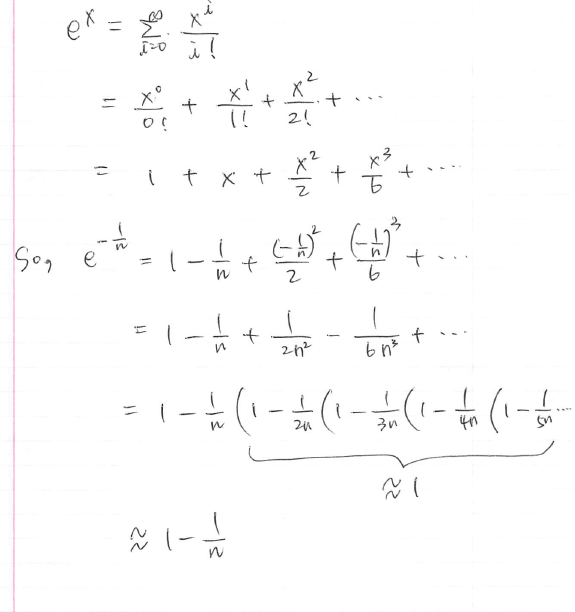 e^x = Σ_{i=0}^{∞} x^i / i!
= x^0/0! + x^1/1! + x^2/2! + ⋯
= 1 + x + x^2/2 + x^3/6 + ⋯
So, e^{-1/n} = 1 - 1/n + (-1/n)^2/2 + (-1/n)^3/6 + ⋯
= 1 - 1/n + 1/2n^2 - 1/6n^3 + ⋯
= 1 - 1/n (1 - 1/2n (1 - 1/3n (1 - 1/4n (1 - 1/5n ⋯
≈ 1
≈ 1 - 1/n